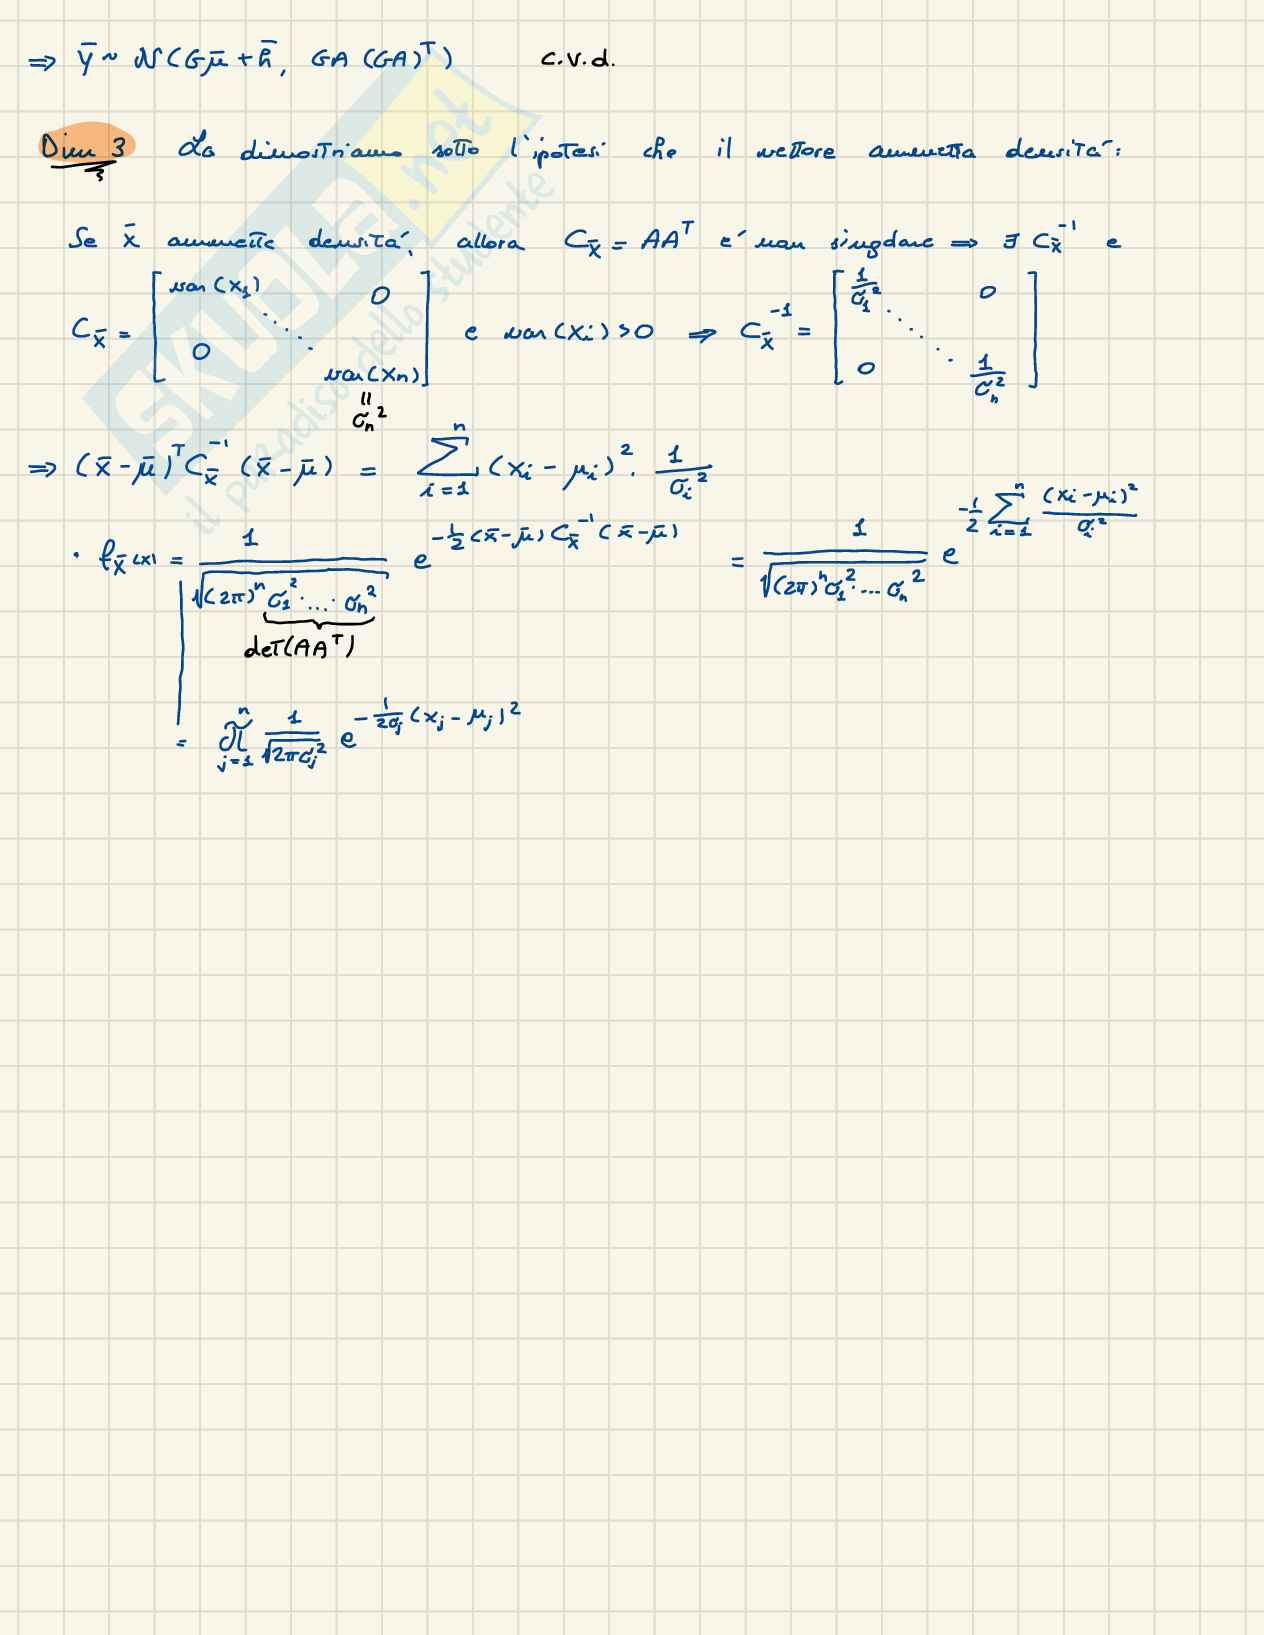 ⇒ Ȳ ~ N(Gμ̄ + h̄, GA(GA)ᵀ) c.v.d.
Dim 3 La dimostriamo sotto l'ipotesi che il vettore ammetta densità:
Se x̄ ammette densità, allora C_x̄ = AAᵀ e' non singolare ⇒ ∃ C_x̄⁻¹ e
C_x̄ = [ var(x₁) 0 ⋱ 0 var(xₙ) ] e var(xᵢ) > 0 ⇒ C_x̄⁻¹ = [ 1/σ₁² 0 ⋱ 0 1/σₙ² ]
= σₙ²
⇒ (x̄ - μ̄)ᵀ C_x̄⁻¹ (x̄ - μ̄) = ∑_{i=1}^{n} (xᵢ - μᵢ)² · 1/σᵢ²
· f_x̄(x) = 1/√((2π)ⁿ σ₁² · ... · σₙ²) e^{-1/2 (x̄-μ̄) C_x̄⁻¹ (x̄-μ̄)} = 1/√((2π)ⁿ σ₁² · ... σₙ²) e^{-1/2 ∑_{i=1}^{n} (xᵢ-μᵢ)²/σᵢ²}
det(AAᵀ)
= ∏_{j=1}^{n} 1/√(2πσⱼ²) e^{-1/(2σⱼ) (xⱼ - μⱼ)²}
SKUOLA.net
il paradiso dello studente